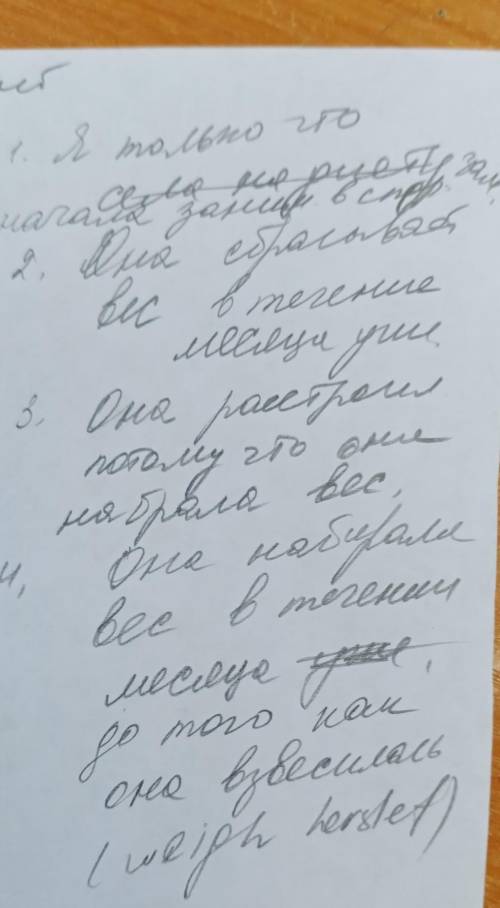 1. Я только что
села на диету
начала заним в спор. зал,
2. Она сбрасывает
вес в течение
месяца уже
3. Она расстроил
потому что она
набрала вес.
4, Она набирала
вес в течении
месяца уже,
до того как
она взвесилась
(weigh herslef)